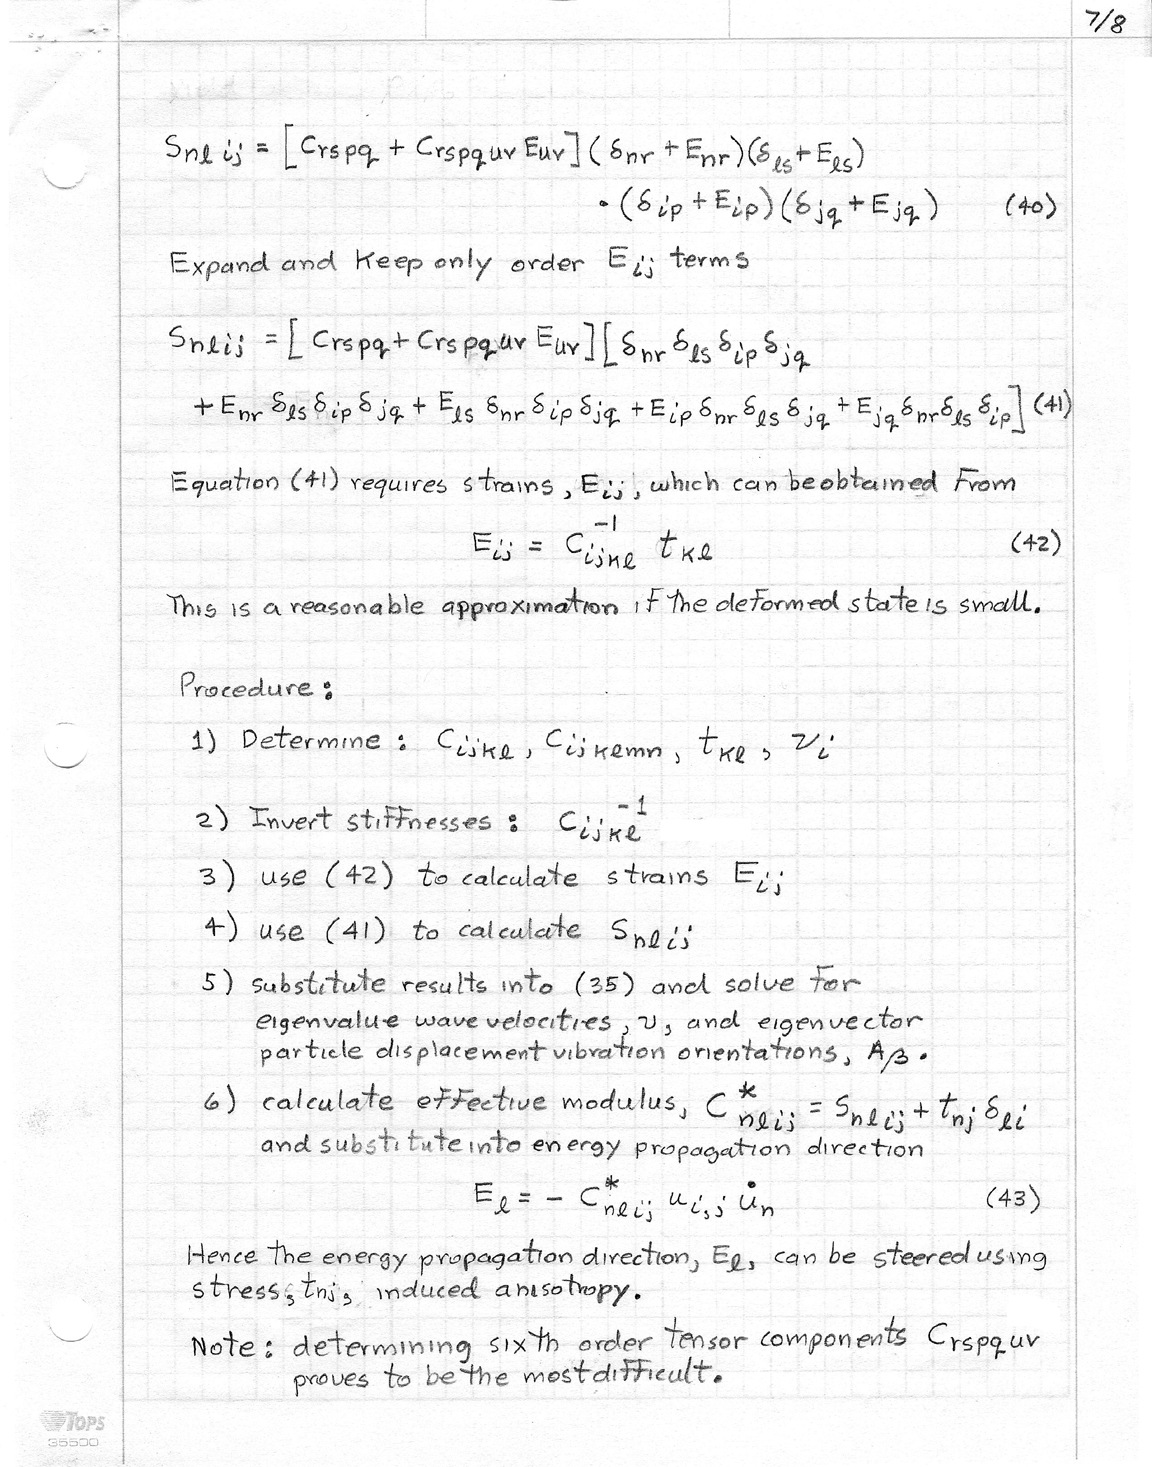 7/8
S_nℓij = [C_rspq + C_rspquv E_uv](δ_nr + E_nr)(δ_ℓs + E_ℓs)
• (δ_ip + E_ip)(δ_jq + E_jq) (40)
Expand and keep only order E_ij terms
S_nℓij = [C_rspq + C_rspquv E_uv][δ_nr δ_ℓs δ_ip δ_jq
+ E_nr δ_ℓs δ_ip δ_jq + E_ℓs δ_nr δ_ip δ_jq + E_ip δ_nr δ_ℓs δ_jq + E_jq δ_nr δ_ℓs δ_ip] (41)
Equation (41) requires strains, E_ij, which can be obtained from
E_ij = C^-1_ijkℓ t_kℓ (42)
This is a reasonable approximation if the deformed state is small.
Procedure:
1) Determine: C_ijkℓ, C_ijkℓmn, t_kℓ, ν_i
2) Invert stiffnesses: C_ijkℓ^-1
3) use (42) to calculate strains E_ij
4) use (41) to calculate S_nℓij
5) substitute results into (35) and solve for
eigenvalue wave velocities, v, and eigenvector
particle displacement vibration orientations, A_β.
6) calculate effective modulus, C*_nℓij = S_nℓij + t_nj δ_ℓi
and substitute into energy propagation direction
E_ℓ = - C*_nℓij u_i,j u̇_n (43)
Hence the energy propagation direction, E_ℓ, can be steered using
stress, t_nj, induced anisotropy.
Note: determining sixth order tensor components C_rspquv
proves to be the most difficult.
TOPS
35500